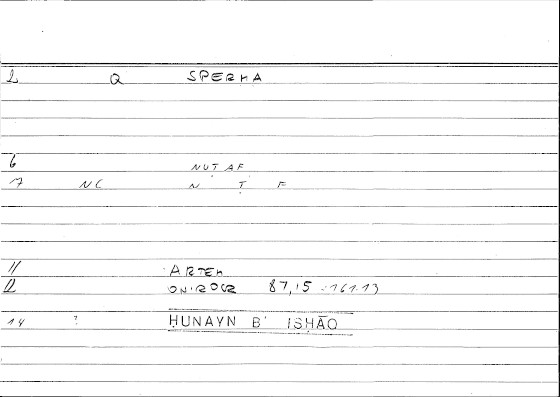 2 Q SPERMA
6 NUṬAF
7 NC N Ṭ F
11 ARTEM
12 ONIROCR 87,15 : 161.13
14 ? ḤUNAYN B' ISḤĀQ